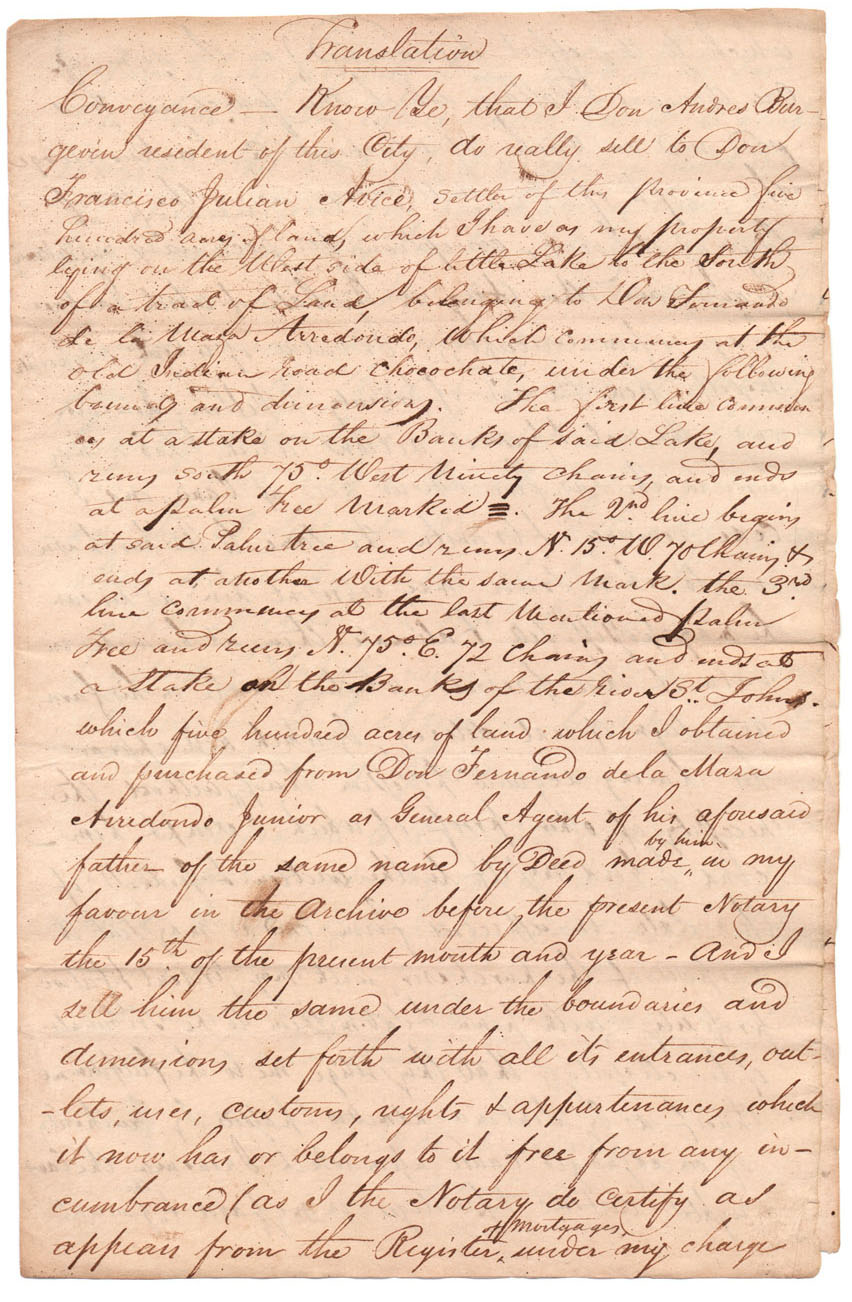 Translation
Conveyance — Know Ye, that I Don Andres Bur-
gevin resedent of this City, do really sell to Don
Francisco Julian Avice, settler of this province five
hundred acres of land, which I have as my property
lying on the West side of little Lake to the South
of a tract of Land, belonging to Don Fernando
de la Maza Arredondo, which commences at the
old Indian road chocochate, under the following
bounds and dimensions. The first line commen
ces at a stake on the Banks of said Lake, and
runs south 75° West Ninety Chains, and ends
at a palm Tree Marked ≡. The 2nd. line begins
at said Palm tree and runs N. 15° W. 70 Chains &
ends at another With the same Mark. the 3rd
line commences at the last Mentioned palm
Tree and runs N. 75° E. 72 Chains and ends at
a stake on the Banks of the river St. Johns.
which five hundred acres of land which I obtained
and purchased from Don Fernando de la Maza
Arredondo Junior as General Agent of his aforesaid
father of the same name by Deed made by him in my
favour in the Archive before the present Notary
the 15th of the present month and year — And I
sell him the same under the boundaries and
dimensions set forth with all its entrances, out-
-lets, uses, customs, rights & appurtenances which
it now has or belongs to it free from any in-
cumbrance (as I the Notary do certify as
appears from the Register of Mortgages under my charge